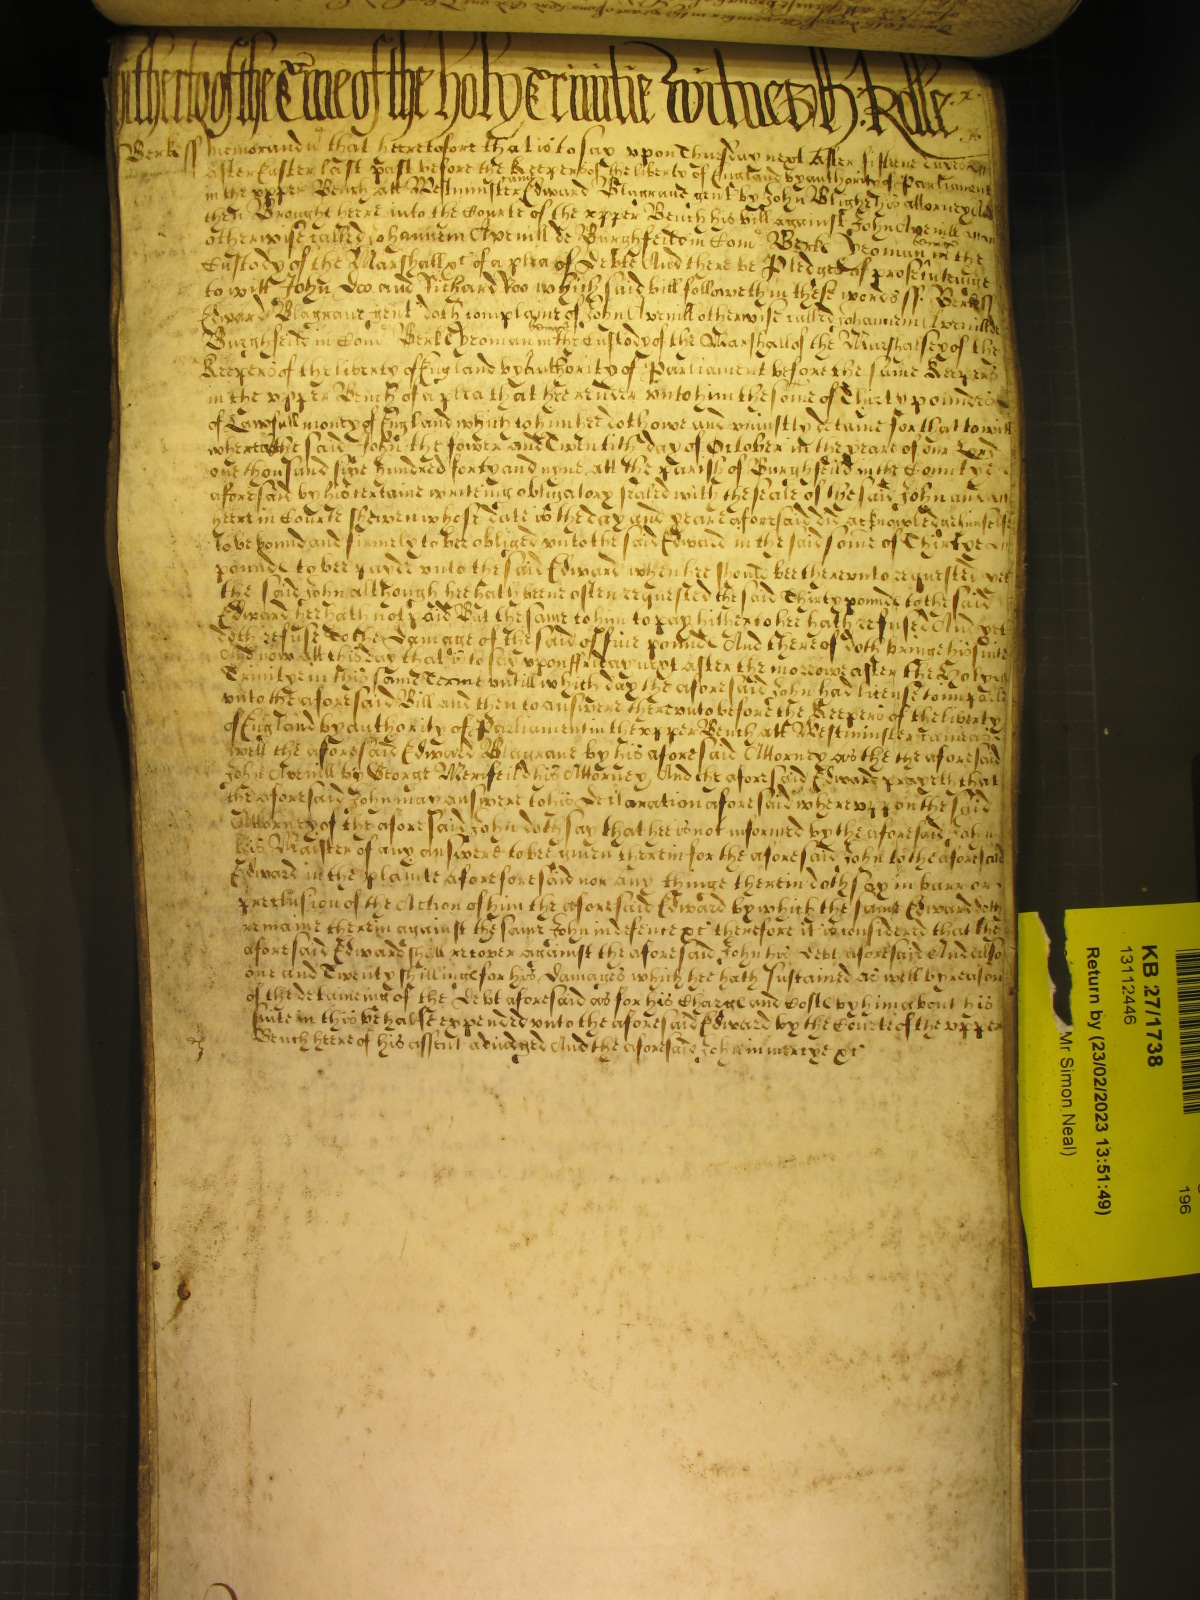 hitherto of the Tyme of the holy Trinitie Witnes H: Rolle
Berks ss Memorandum that heretofore that is to say upon Thursday next after fifteene dayes
after Easter last past before the Keepers of the liberty of England by authority of Parliament
in the upper Bench att Westminster came Edward Blagrave gent by John Blighe his attorney And
then Brought heere into the Courte of the upper Bench his bill against John Avenill
otherwise called Johannem Avenill de Burghfeild in Com Berks Yeoman beinge in the
Custody of the Marshall &c of a plea of Debte And there be Pledges of prosecutinge
to witt John Doo and Richard Roo which said bill followeth in these words ss: Berks ss
Edward Blagrave gent doth complaine of John Avenill otherwise called Johannem Avenill de
Burghfeild in Com Berks Yeoman beinge in the Custody of the Marshall of the Marshalsey of the
Keepers of the liberty of England by Authority of Parliament before the same Keepers
in the upper Bench of a plea that hee render unto him the some of Thirty pounds
of Lawfull money of England which to him hee doth owe and uniustly detaine for that to witt
whereas the said John the fower and Twentith day of October in the yeare of our Lord
one thousand sixe hundred forty and nyne att the parish of Burghfeild in the County
aforesaid by his certaine writeing obligatory sealed with the seale of the said John and
heere in Courte shewen whose date is the day and yeare aforesaid did acknowledge himselfe
to be bound and firmely to bee obliged unto the said Edward in the said some of Thirtye
pounds to bee payed unto the said Edward when hee should bee thereunto requested yet
the said John although hee hath beene often requested the said Thirty pounds to the said
Edward hee hath not paid But the same to him to pay hitherto hee hath refused And yet
doth refuse To the Damage of the said of five pounds And thereof doth bringe his suite
And now att this day that is to say upon ffriday next after the morrowe after the Holy
Trinitye in this same Terme untill which day the aforesaid John had license to imparle
unto the aforesaid Bill and then to answere thereunto before the Keepers of the liberty
of England by authority of Parliament in the upper Bench att Westminster came as
well the aforesaid Edward Blagrave by his aforesaid Attorney as the the aforesaid
John Avenill by George Merifeild his Attorney And the aforesaid Edward prayeth that
the aforesaid John may answere to his Declaration aforesaid whereuppon the said
Attorney of the aforesaid John doth say that hee is not informed by the aforesaid John
his Maister of any answere to bee given therein for the aforesaid John to the aforesaid
Edward in the plainte aforesoresaid nor any thinge therein doth say in barr or
preclusion of the Action of him the aforesaid Edward by which the same Edward doth
remaine therein against the same John indefence &c therefore it is considered that the
aforesaid Edward shall recover against the aforesaid John his Debt aforesaid And also
one and Twenty shillings for his Damages which hee hath sustained as well by reason
of the detaineing of the Debt aforesaid as for his Charges and Costs by him about his
suite in this behalfe expended unto the aforesaid Edward by the Courte of the upper
Bench heere of his assent adiudged And the aforesaid John in mercye &c
KB 27/1738
13112446
Return by (23/02/2023 13:51:49)
Mr Simon Neal)
196